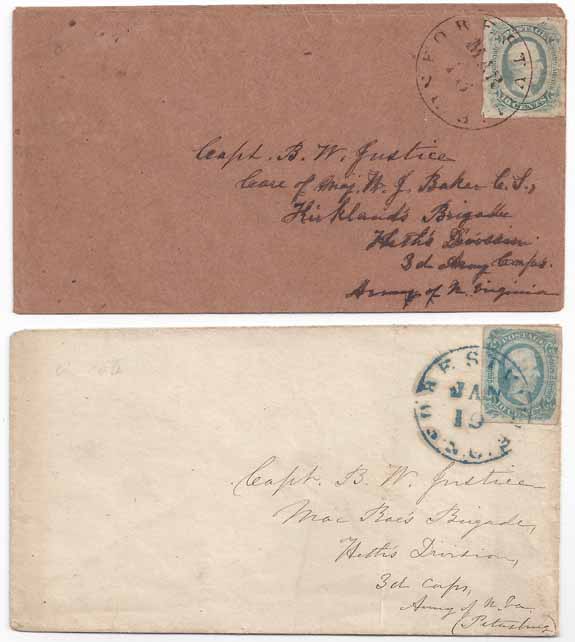 FORESTV
MAR
POSTAGE
TEN CENTS
Capt. B. W. Justice
Care of Maj. W. J. Baker C. S.,
Kirkland's Brigade
Heth's Division
3d Army Corps.
Army of N. Virginia
FOREST
JAN
19
N.C.
POSTAGE
TEN CENTS
Capt. B. W. Justice
Mac Rae's Brigade,
Heth's Division,
3d Corps,
Army of N. Va.
(Petersburg)